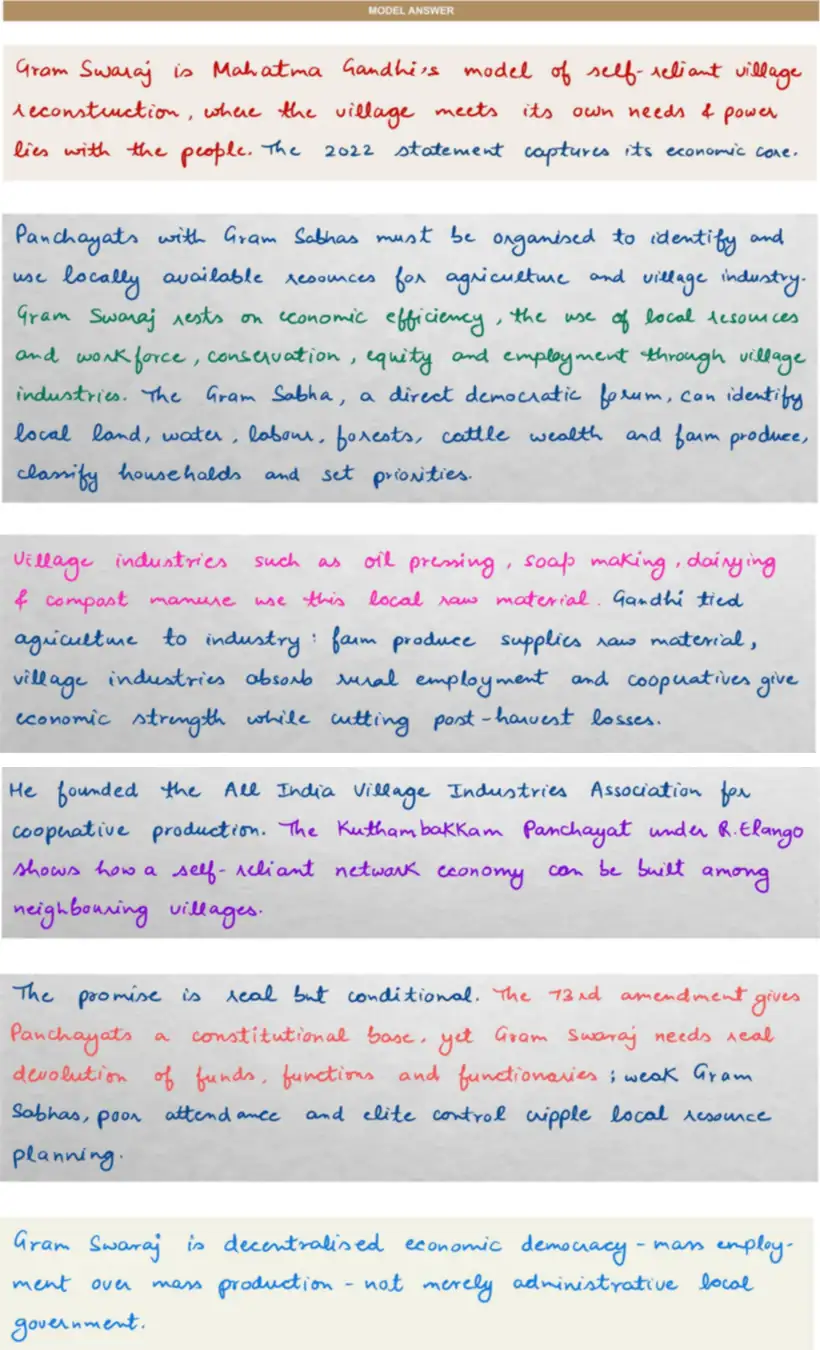 MODEL ANSWER
Gram Swaraj is Mahatma Gandhi's model of self-reliant village
reconstruction, where the village meets its own needs & power
lies with the people. The 2022 statement captures its economic core.
Panchayats with Gram Sabhas must be organised to identify and
use locally available resources for agriculture and village industry.
Gram Swaraj rests on economic efficiency, the use of local resources
and workforce, conservation, equity and employment through village
industries. The Gram Sabha, a direct democratic forum, can identify
local land, water, labour, forests, cattle wealth and farm produce,
classify households and set priorities.
Village industries such as oil pressing, soap making, dairying
& compost manure use this local raw material. Gandhi tied
agriculture to industry: farm produce supplies raw material,
village industries absorb rural employment and cooperatives give
economic strength while cutting post-harvest losses.
He founded the All India Village Industries Association for
cooperative production. The Kuthambakkam Panchayat under R.Elango
shows how a self-reliant network economy can be built among
neighbouring villages.
The promise is real but conditional. The 73rd amendment gives
Panchayats a constitutional base, yet Gram Swaraj needs real
devolution of funds, functions and functionaries; weak Gram
Sabhas, poor attendance and elite control cripple local resource
planning.
Gram Swaraj is decentralised economic democracy - mass employ-
ment over mass production - not merely administrative local
government.